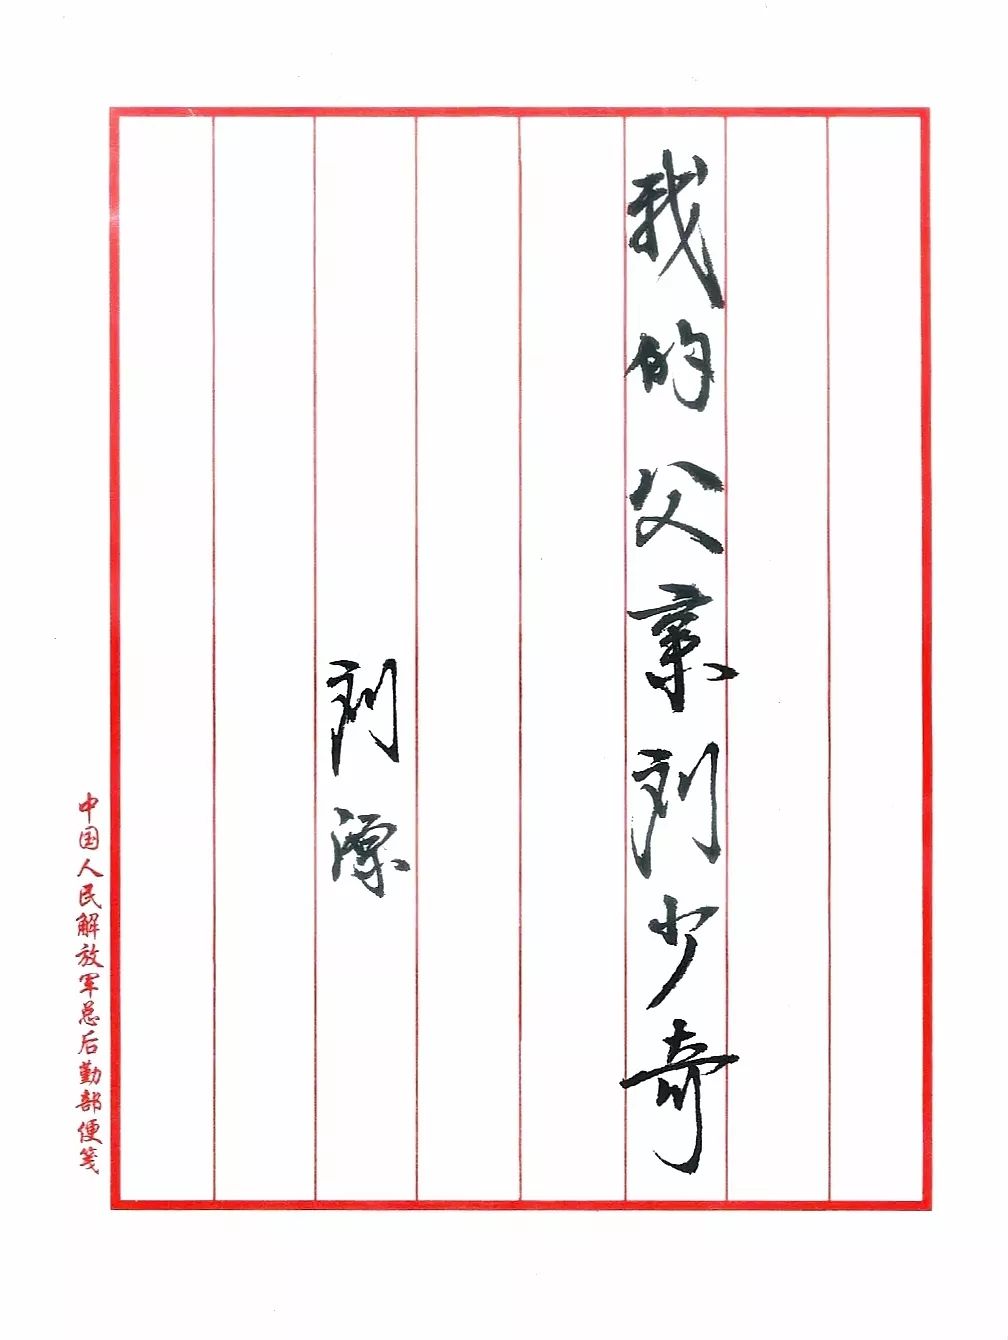 我的父亲刘少奇
刘源
中国人民解放军总后勤部便笺